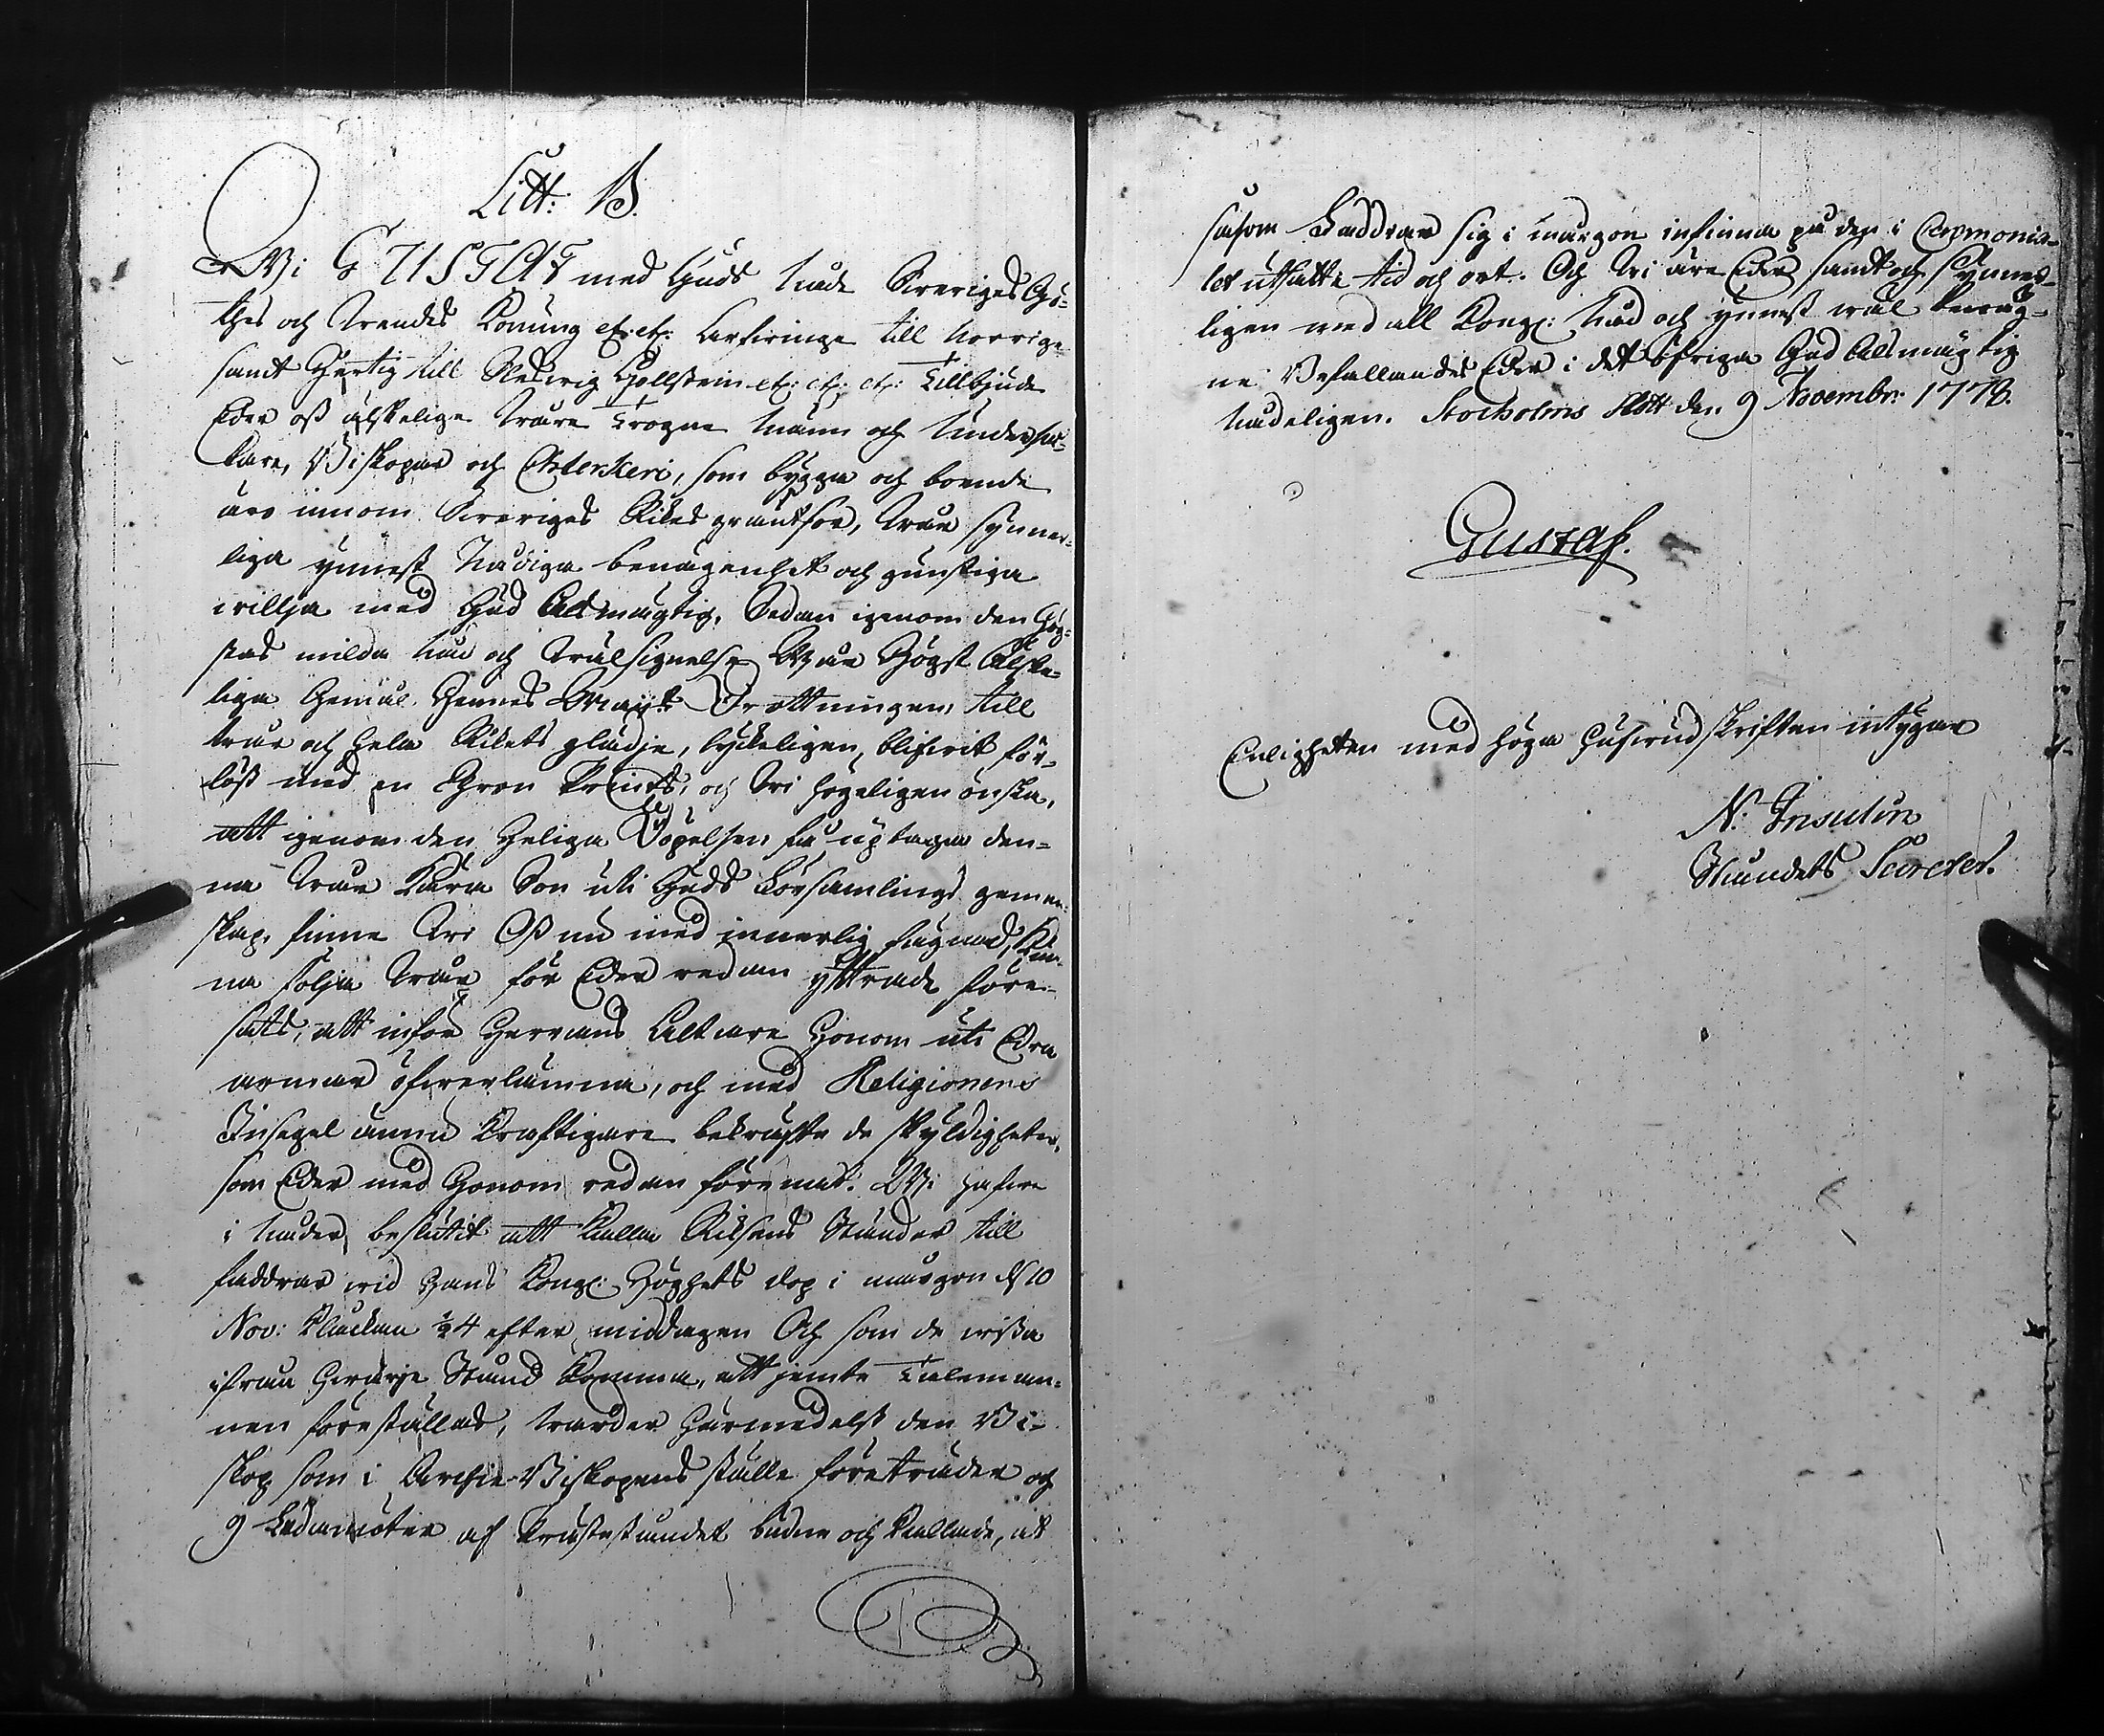 Litt: B.
Wi GUSTAF med Guds Nåde Sveriges Gö-
thes och Wendes Konung etc: etc: Arfvinge till Norrige
samt Hertig till Sleswig Hollstein etc: etc: etc: Tillbjude
Eder oss älskelige Wåre Trogne Männ och Underså-
tare, Biskopar och Clerkeri, som bygga och boende
äro innom Sveriges Rikes gräntsor, Wår synner-
liga ynnest Nådiga benägenhet och gunstiga
willja med Gud Alsmägtig. Sedan igenom den Hög-
stas milda Nåd och Wälsignelse Wår Högst Älske-
liga Gemål Hennes Maij:t Drottningen, till
Wår och hela Rikets glädje, lyckeligen, blifvit för-
löst med en Chron Prints, och Wi högeligen önska,
att igenom den Heliga Döpelsen få uptaga den-
na Wår Kära Son uti Guds Församlings gemen-
skap, finne Wi Oss nu med innerlig fägnad, kun-
na följa Wår för Eder redan yttrade före-
sats, att inför Herrans Altare Honom uti Edra
armar öfverlämna, och med Religionens
Insegel ännu Kraftigare bekräfta de skyldigheter,
som Eder med Honom redan förenat. Wi hafve
i Nåder, beslutit att kalla Riksens Ständer till
faddrar vid Hans Kongl: Höghets dop i morgon d 10
Nov: Klockan ½ 4 efter middagen Och som de vissa
ifrån hvarje Stånd komma, att jemte Taleman-
nen föreställas, warder Härmedelst den Bi-
skop som i Archie-Biskopens ställe företräder och
9 Ledamöter af Prästeståndet budne och kallade, at
såsom Faddrar sig i morgon infinna på den i Ceremonia-
let utsatte tid och ort. Och Wi äre Eder samt och synner-
ligen med all Kongl: Nåd och ynnest wäl benäg-
ne Befallandes Eder i det öfriga Gud Alsmägtig
Nådeligen. Stockholms Slott den 9 Novembr: 1778.
Gustaf.
Enligheten med höga hufvudskriften intygar
N: Insulin
Ståndets Secreter.